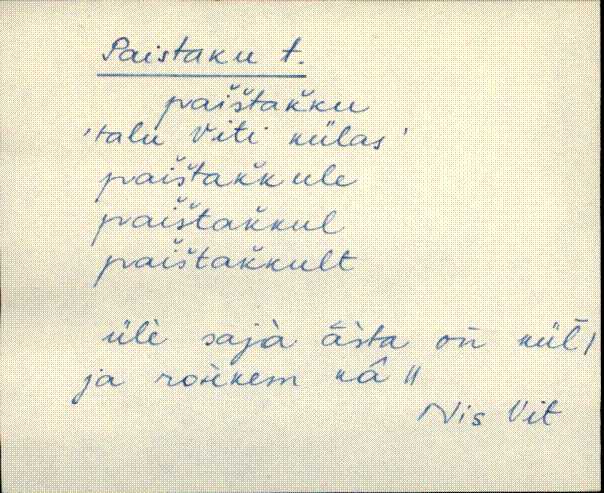 Paistaku t.
paištakku
'talu Viti külas'
paištakkule
paištakkul
paištakkult
üle saja āsta on
ja rohkem kâ //
Nis Vit